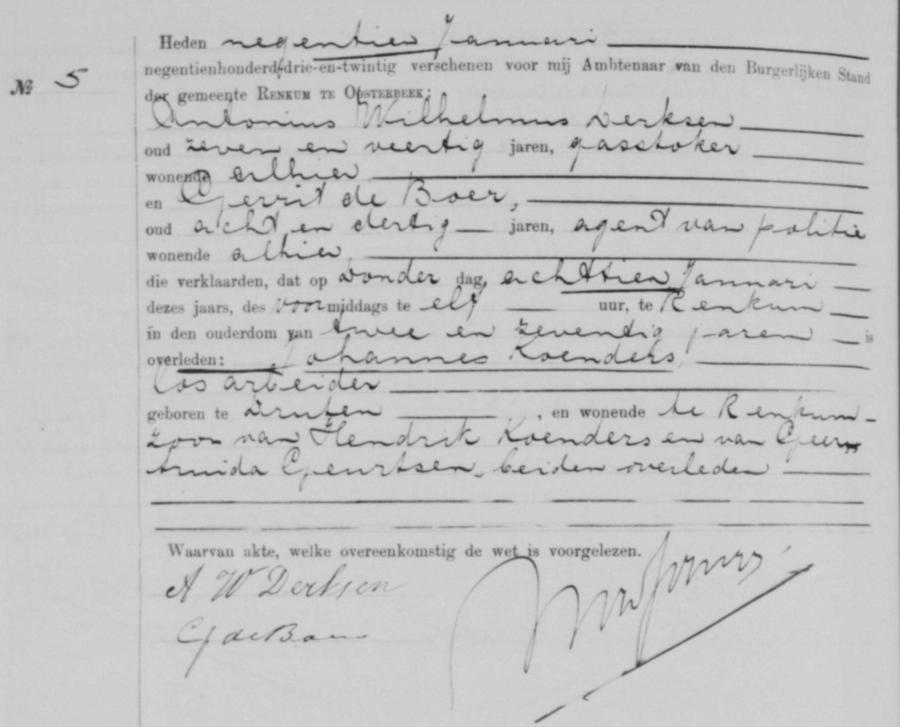 Heden negentien Januari
negentienhonderd drie-en-twintig verschenen voor mij Ambtenaar van den Burgerlijken Stand
№ 5
der gemeente RENKUM TE OOSTERBEEK:
Antonius Wilhelmus Derksen
oud zeven en veertig jaren, gasstoker
wonende alhier
en Gerrit de Boer,
oud acht en dertig jaren, agent van politie
wonende alhier,
die verklaarden, dat op Donder dag, achttien Januari
dezes jaars, des voormiddags te elf uur, te Renkum
in den ouderdom van twee en zeventig jaren is
overleden: Johannes Koenders,
los arbeider
geboren te Druten, en wonende te Renkum
zoon van Hendrik Koenders en van Geer
truida Geurtsen, beiden overleden
Waarvan akte, welke overeenkomstig de wet is voorgelezen.
A W Derksen
G de Boer